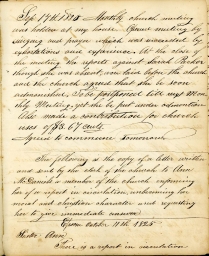 Sep 17th 1825 Monthly church meeting
was holden at my house. Opened meeting by
singing and prayer which was succeeded by
exhortations and experience. At the close of
the meeting the reports against Sarah
though she was absent, was laid before the church
and the church agree that she be
admonished, & be postponed till next Mon-
thly Meeting, yet she be put under admonition
Also made a contribution for church
uses of $3.67 cents.
Agreed to commune tomorrow
The following is the copy of a letter written
and sent by the clerk of the church to Ann
McDaniels a member of the church informing
her of a report in circulation concerning her
moral and christian character and requesting
her to give immediate answer
October 11th 1825
Ann
There is a report in circulation